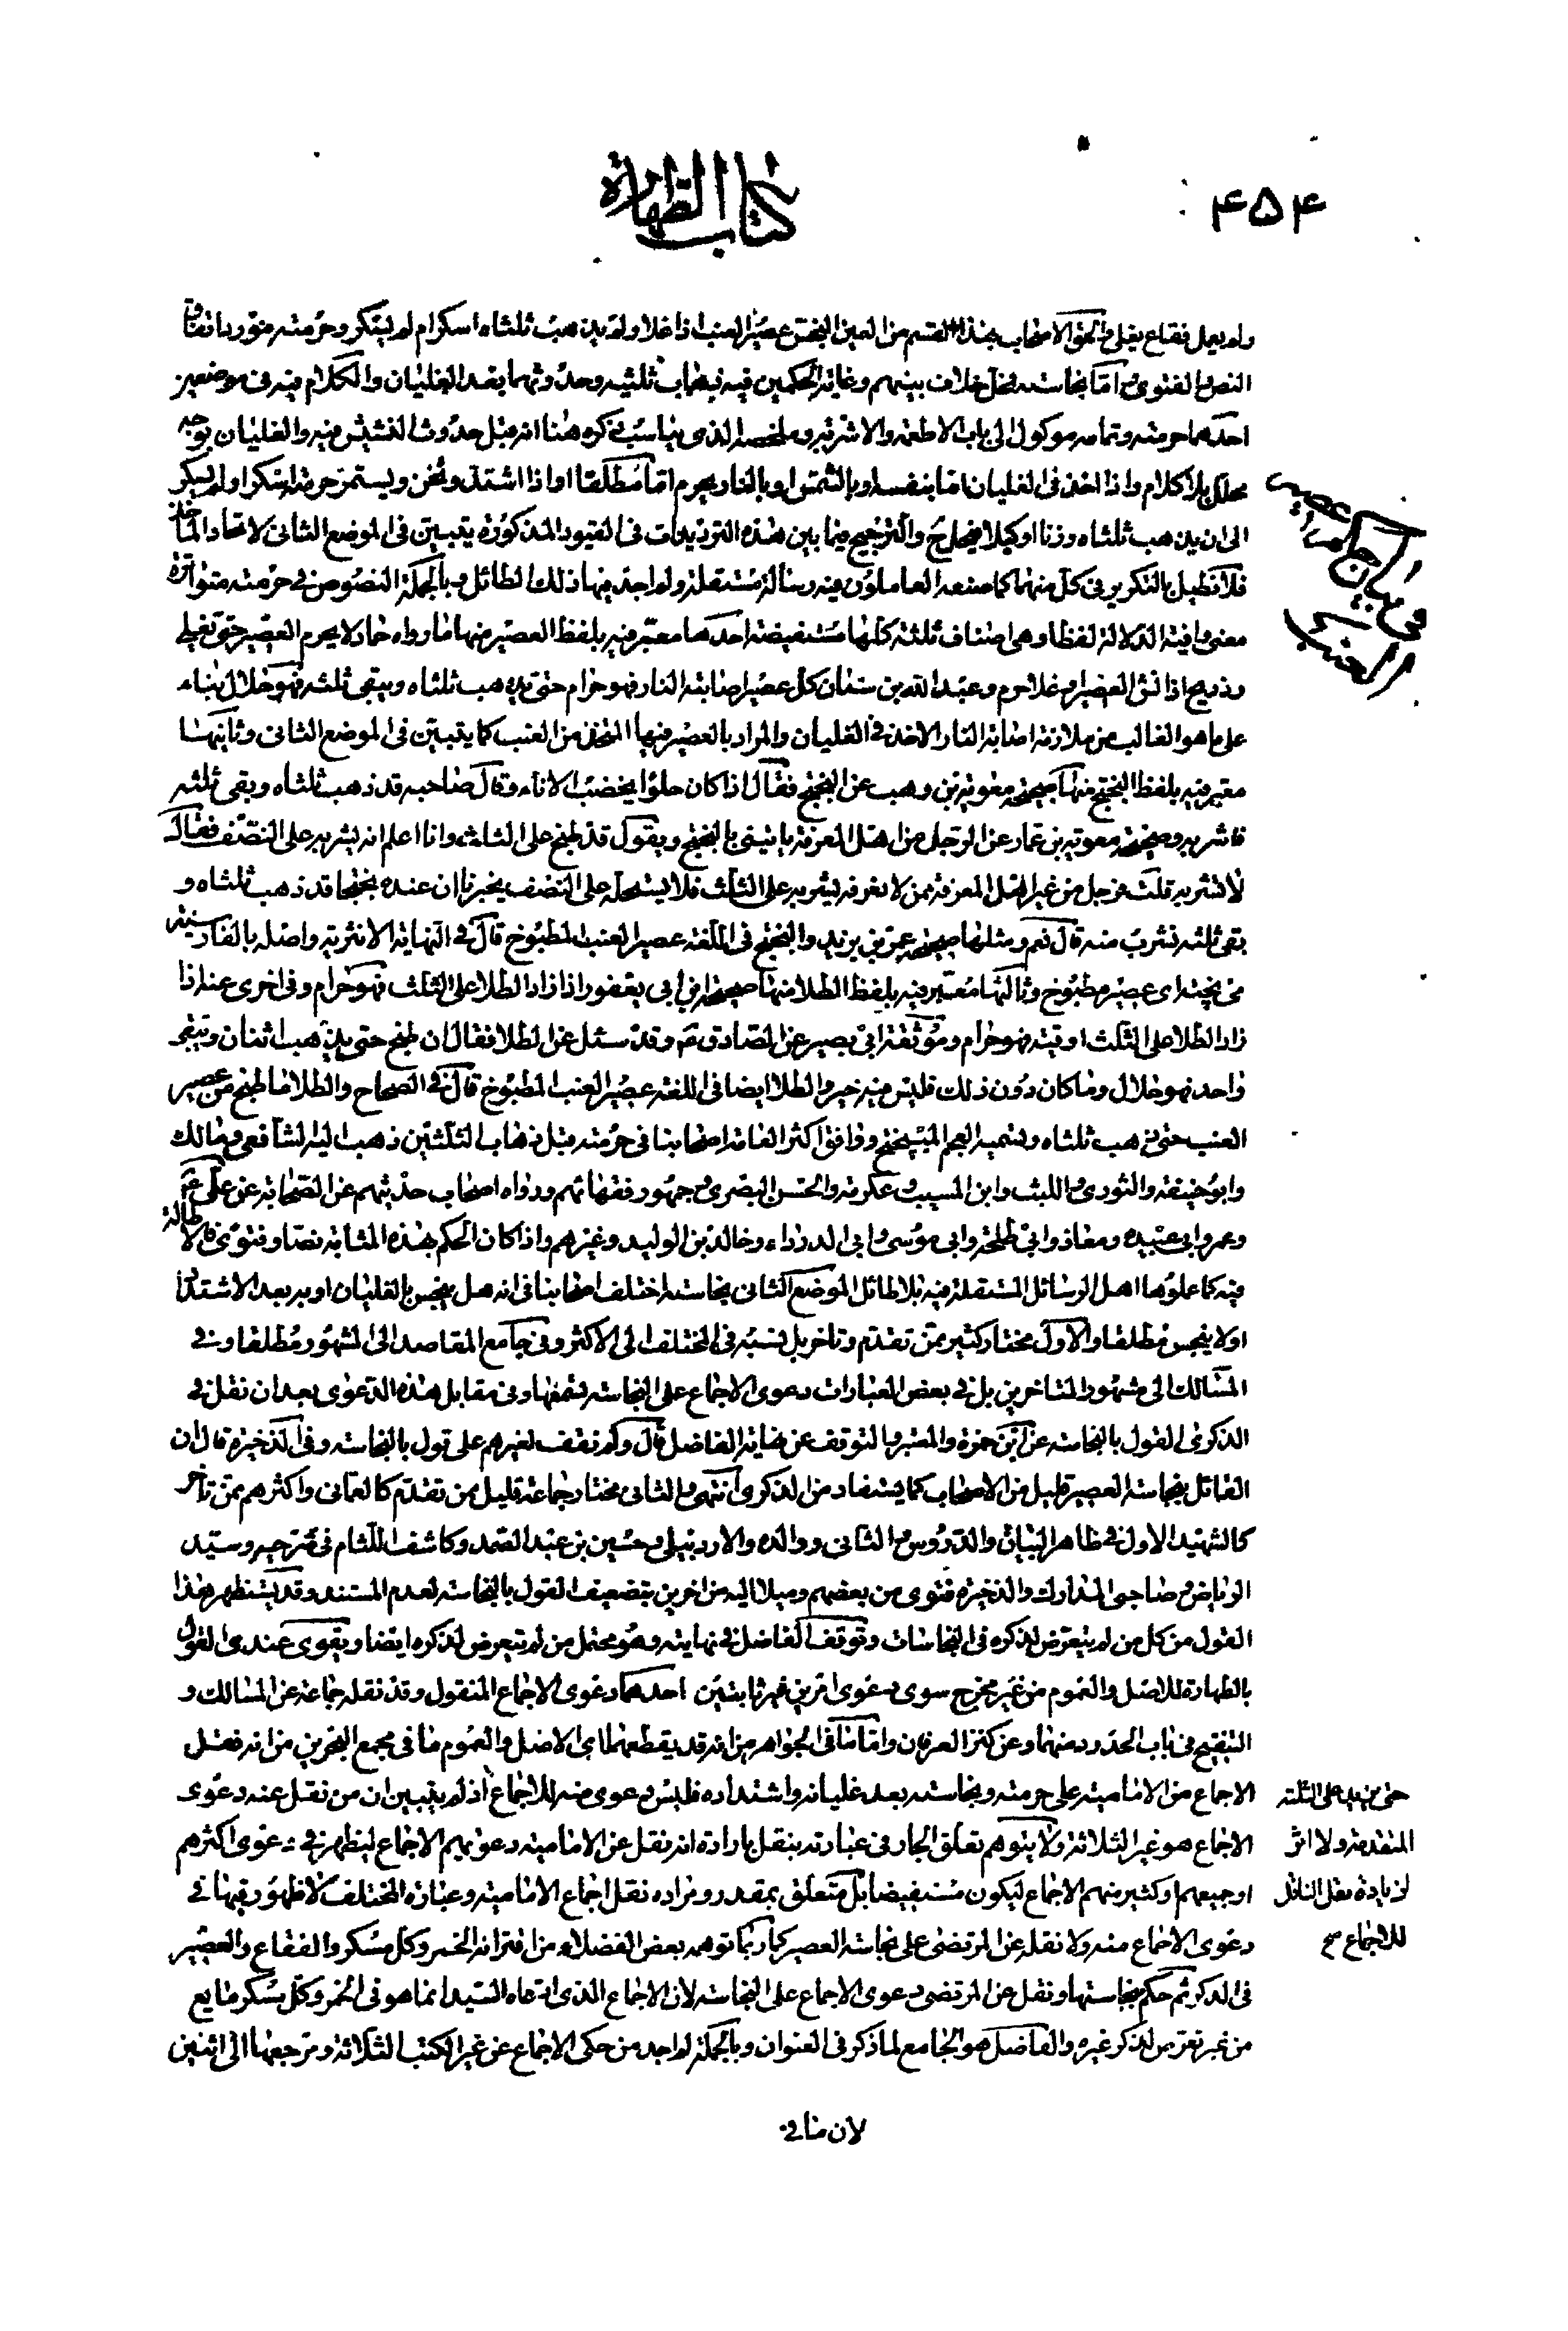 ۴۵۴
كتاب الطهارة
وله يعمل فقاع يغلي والحق الاصحاب بهذا القسم من العين النجس عصير العنب اذا غلا ولم يذهب ثلثاه اسكر ام لم يسكر وحرمته منوّر باتفاق
النص والفتوى واما نجاسته فمحل خلاف بينهم وغاية الحكمين فيه ذهاب ثلثيه وحدوثهما بعد الغليان والكلام فيه في موضعين
احدهما حرمته وتمامه موكول الى باب الاطعمة والاشربة وملخصه الذي يناسب ذكره هنا انه قبل حدوث النشيش فيه والغليان بوجه
محلل بلا كلام واذا اخذ في الغليان اما بنفسه او بالشمس او بالنار يحرم اما مطلقا او اذا اشتد وثخن ويستمر حرمته اسكر او لم يسكر
الى ان يذهب ثلثاه وزنا او كيلا فيحل ح والترجيح فيما بين هذه الترديدات في القيود المذكورة يتبين في الموضع الثاني لاتحاد الماخذ
فلا نطيل بالتكرير في كل منهما كما صنعه العاملون فيه رسالة مستقلة ولم اجد فيها ذلك الطائل وبالجملة النصوص في حرمته متواترة
معنى وافية الدلالة لفظا وهي اصناف ثلثة كلها مستفيضة احدها معبّر فيه بلفظ العصير منها ما رواه حماد لا يحرم العصير حتى يغلي
وذريح اذا نش العصير او غلا حرم وعبد الله بن سنان كل عصير اصابته النار فهو حرام حتى يذهب ثلثاه ويبقى ثلثه فهو حلال بناء
على ما هو الغالب من ملازمة اصابة النار الاخذ في الغليان والمراد بالعصير فيها المتخذ من العنب كما يتبين في الموضع الثاني وثانيها
معبر فيه بلفظ البختج منها صحيحة معوية بن وهب عن البختج فقال اذا كان حلوا يخضب الاناء وقال صاحبه قد ذهب ثلثاه وبقى ثلثه
فاشربه وصحيحة معوية بن عمار عن الرجل من اهل المعرفة ياتيني بالبختج ويقول قد طبخ على الثلث وانا اعلم انه يشربه على النصف فقال
لا تشربه قلت فرجل من غير اهل المعرفة ممن لا نعرفه يشربه على الثلث فلا يستحله على النصف يخبرنا ان عنده بختجا قد ذهب ثلثاه و
بقى ثلثه نشرب منه قال نعم ومثلها صحيحة عمر بن يزيد والبختج في اللغة عصير العنب المطبوخ قال في النهاية الاثرية واصله بالفارسية
مى پخته اى عصير مطبوخ وثالثها معبّر فيه بلفظ الطلا منها صحيحة ابن ابي يعفور اذا زاد الطلا على الثلث فهو حرام وفي اخرى عنه اذا
زاد الطلا على الثلث اوقية فهو حرام وموثقة ابي بصير عن الصادق ع وقد سئل عن الطلا فقال ان طبخ حتى يذهب اثنان ويبقى
واحد فهو حلال وما كان دون ذلك فليس فيه خير والطلا ايضا في اللغة عصير العنب المطبوخ قال في الصحاح والطلا ما طبخ من عصير
العنب حتى ذهب ثلثاه وتسميه العجم الميبختج ووافق اكثر العامة اصحابنا في حرمته قبل ذهاب الثلثين ذهب اليه الشافعي ومالك
وابو حنيفة والثوري والليث وابن المسيب وعكرمة والحسن البصري وجمهور فقهائهم ورواه اصحاب حديثهم عن الصحابة عن علي ع
وعمر وابي عبيده ومعاذ وابي طلحة وابي موسى وابي الدرداء وخالد بن الوليد وغيرهم واذا كان الحكم بهذه المثابة نصا وفتوى فالاطالة
فيه كما عملوها اهل الرسائل المستقلة فيه بلا طائل الموضع الثاني نجاسته اختلف اصحابنا في انه هل ينجس بالغليان او به بعد الاشتداد
او لا ينجس مطلقا والاول مختار كثير ممن تقدم وتاخر بل نسبه في المختلف الى الاكثر وفي جامع المقاصد الى المشهور مطلقا وفي
المسالك الى مشهور المتاخرين بل في بعض العبارات دعوى الاجماع على النجاسة وفي مقابل هذه الدعوى بعد ان نقل في
الذكرى القول بالنجاسة عن ابن حمزة والمعتبر والتوقف عن نهاية الفاضل قال ولم نقف لغيرهم على قول بالنجاسة وفي الذخيرة قال ان
القائل بنجاسة العصير قليل من الاصحاب كما يستفاد من الذكرى انتهى والثاني مختار جماعة قليل من تقدم كالعماني واكثرهم ممن تاخر
كالشهيد الاول في ظاهر البيان والدروس والثاني ووالده والاردبيلي وحسين بن عبد الصمد وكاشف اللثام في شرحيه وسيد
الرياض وصاحبي المدارك والذخيرة فتوى من بعضهم وميلا اليه من اخرين بتضعيف القول بالنجاسة لعدم المستند وقد يستظهر هذا
القول من كل من لم يتعرض لذكره في النجاسات وتوقف الفاضل في نهايته وهو محتمل من لم يتعرض لذكره ايضا ويقوى عندي القول
بالطهارة للاصل والعموم من غير مخرج سوى دعوى امرين غير ثابتين احدهما دعوى الاجماع المنقول وقد نقله جماعة عن المسالك و
التنقيح في باب الحدود منهما وعن كنز العرفان واما ما في الجواهر من انه قد يقطعهما اى الاصل والعموم ما في مجمع البحرين من انه فصل
الاجماع من الامامية على حرمته ونجاسته بعد غليانه واشتداده فليس دعوى منه للاجماع اذ لم يتبين ان من نقل عنه دعوى
الاجماع هو غير الثلاثة ولا يتوهم تعلق الجار في عبارته بنقل بارادة انه نقل عن الامامية دعويهم الاجماع ليظهر في دعوى اكثرهم
او جميعهم او كثير منهم الاجماع ليكون مستفيضا بل متعلق بمقدر ومراده نقل اجماع الامامية وعبارة المختلف لا ظهور فيها في
دعوى الاجماع منه ولا نقله عن المرتضى على نجاسة العصير كما ربما توهمه بعض الفضلاء من اقترانه الخمر وكل مسكر والفقاع والعصير
في الذكر ثم حكم بنجاستها ونقل عن المرتضى دعوى الاجماع على النجاسة لان الاجماع الذي ادعاه السيد انما هو في الخمر وكل مسكر مايع
من غير تعرض لذكر غيره والفاضل هو الجامع لما ذكر في العنوان وبالجملة لم اجد من حكى الاجماع عن غير الكتب الثلاثة ومرجعها الى اثنين
في بيان احكام عصير
العنب
حتى يزيد على الثلثة
المتقدمة ولا اثر
لزيادة نقل الناقل
للاجماع صح
لان ما في